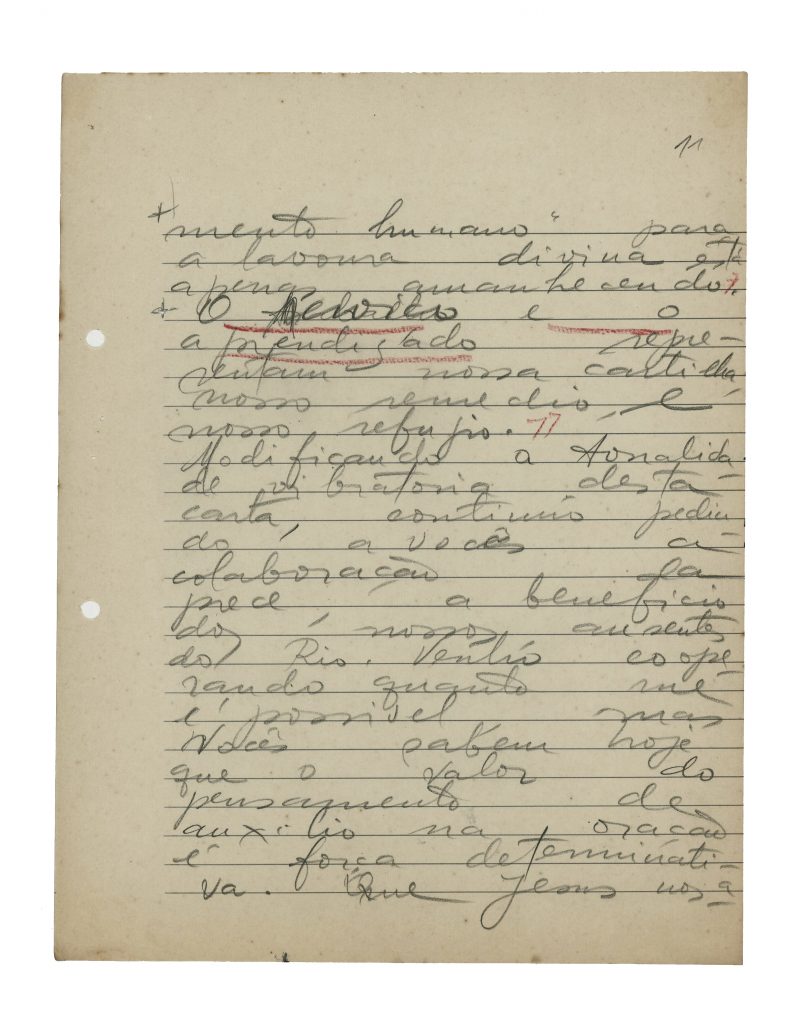 11
+ mento humano" para
a lavoura divina está
apenas amanhecendo".
+ O serviço e o
aprendizado repre-
sentam nossa cartilha,
nosso remedio, e
nosso refujio. 77
Modificando a tonalida-
de vibratoria desta
carta, continúo pedin-
do, a vocês a
colaboração da
prece, a beneficio
dos nossos ausentes
do Rio. Venho coope-
rando quanto me
é possivel mas
Vocês sabem hoje
que o valor do
pensamento de
auxilio na oração
é força determinati-
va. Que Jesus nos a